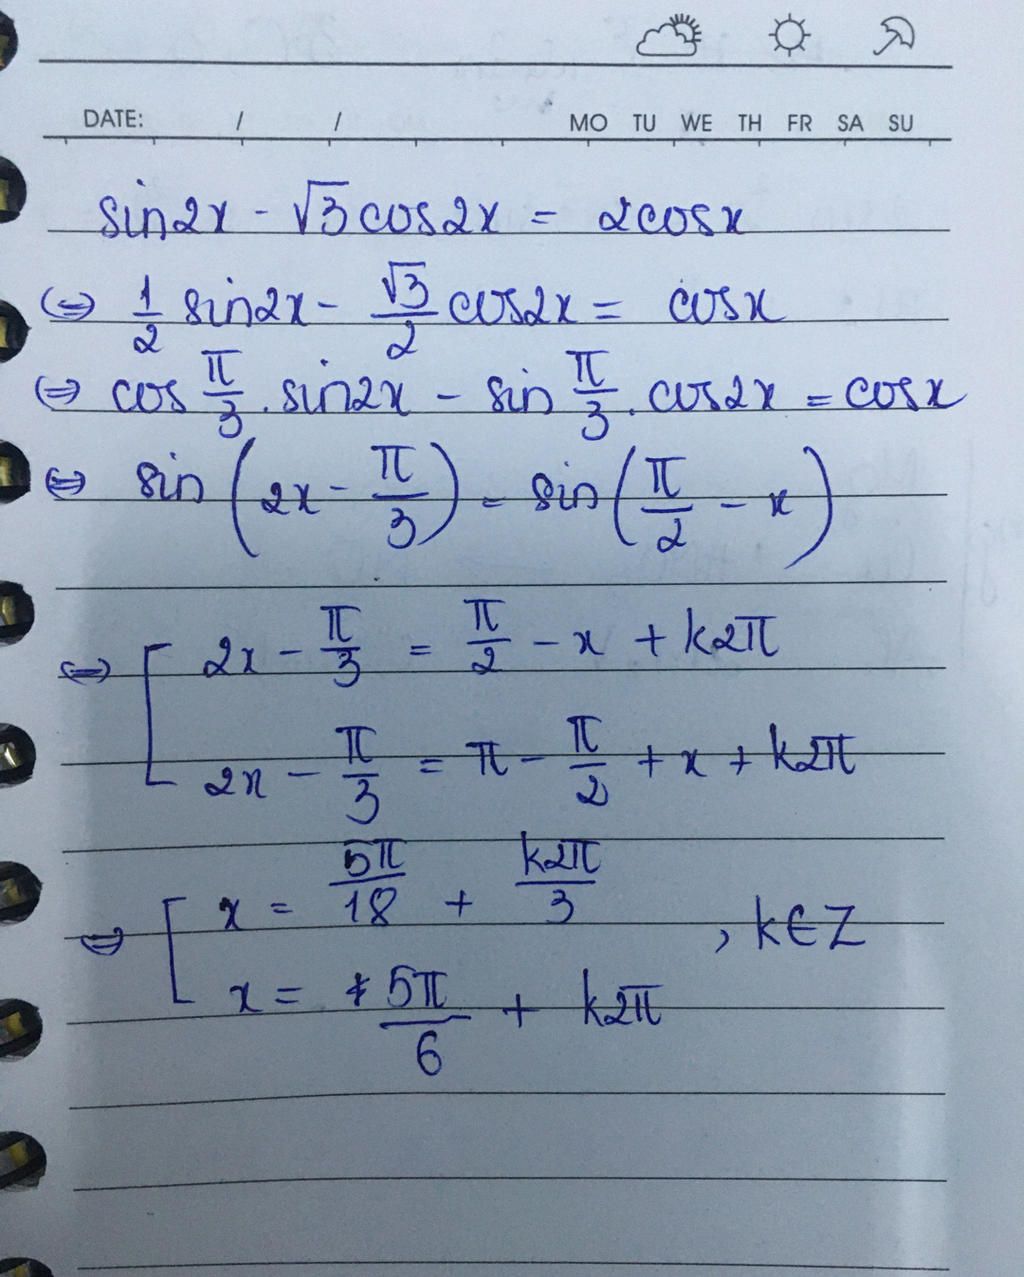 DATE: / / MO TU WE TH FR SA SU
sin2x - √3cos2x = 2cosx
(=) 1/2 sin2x - √3/2 cos2x = cosx
(=) cos π/3 . sin2x - sin π/3 . cos2x = cosx
(=) sin (2x - π/3) = sin (π/2 - x)
(=) [ 2x - π/3 = π/2 - x + k2π
2x - π/3 = π - π/2 + x + k2π
(=) [ x = 5π/18 + k2π/3
, k∈Z
x = 5π/6 + k2π